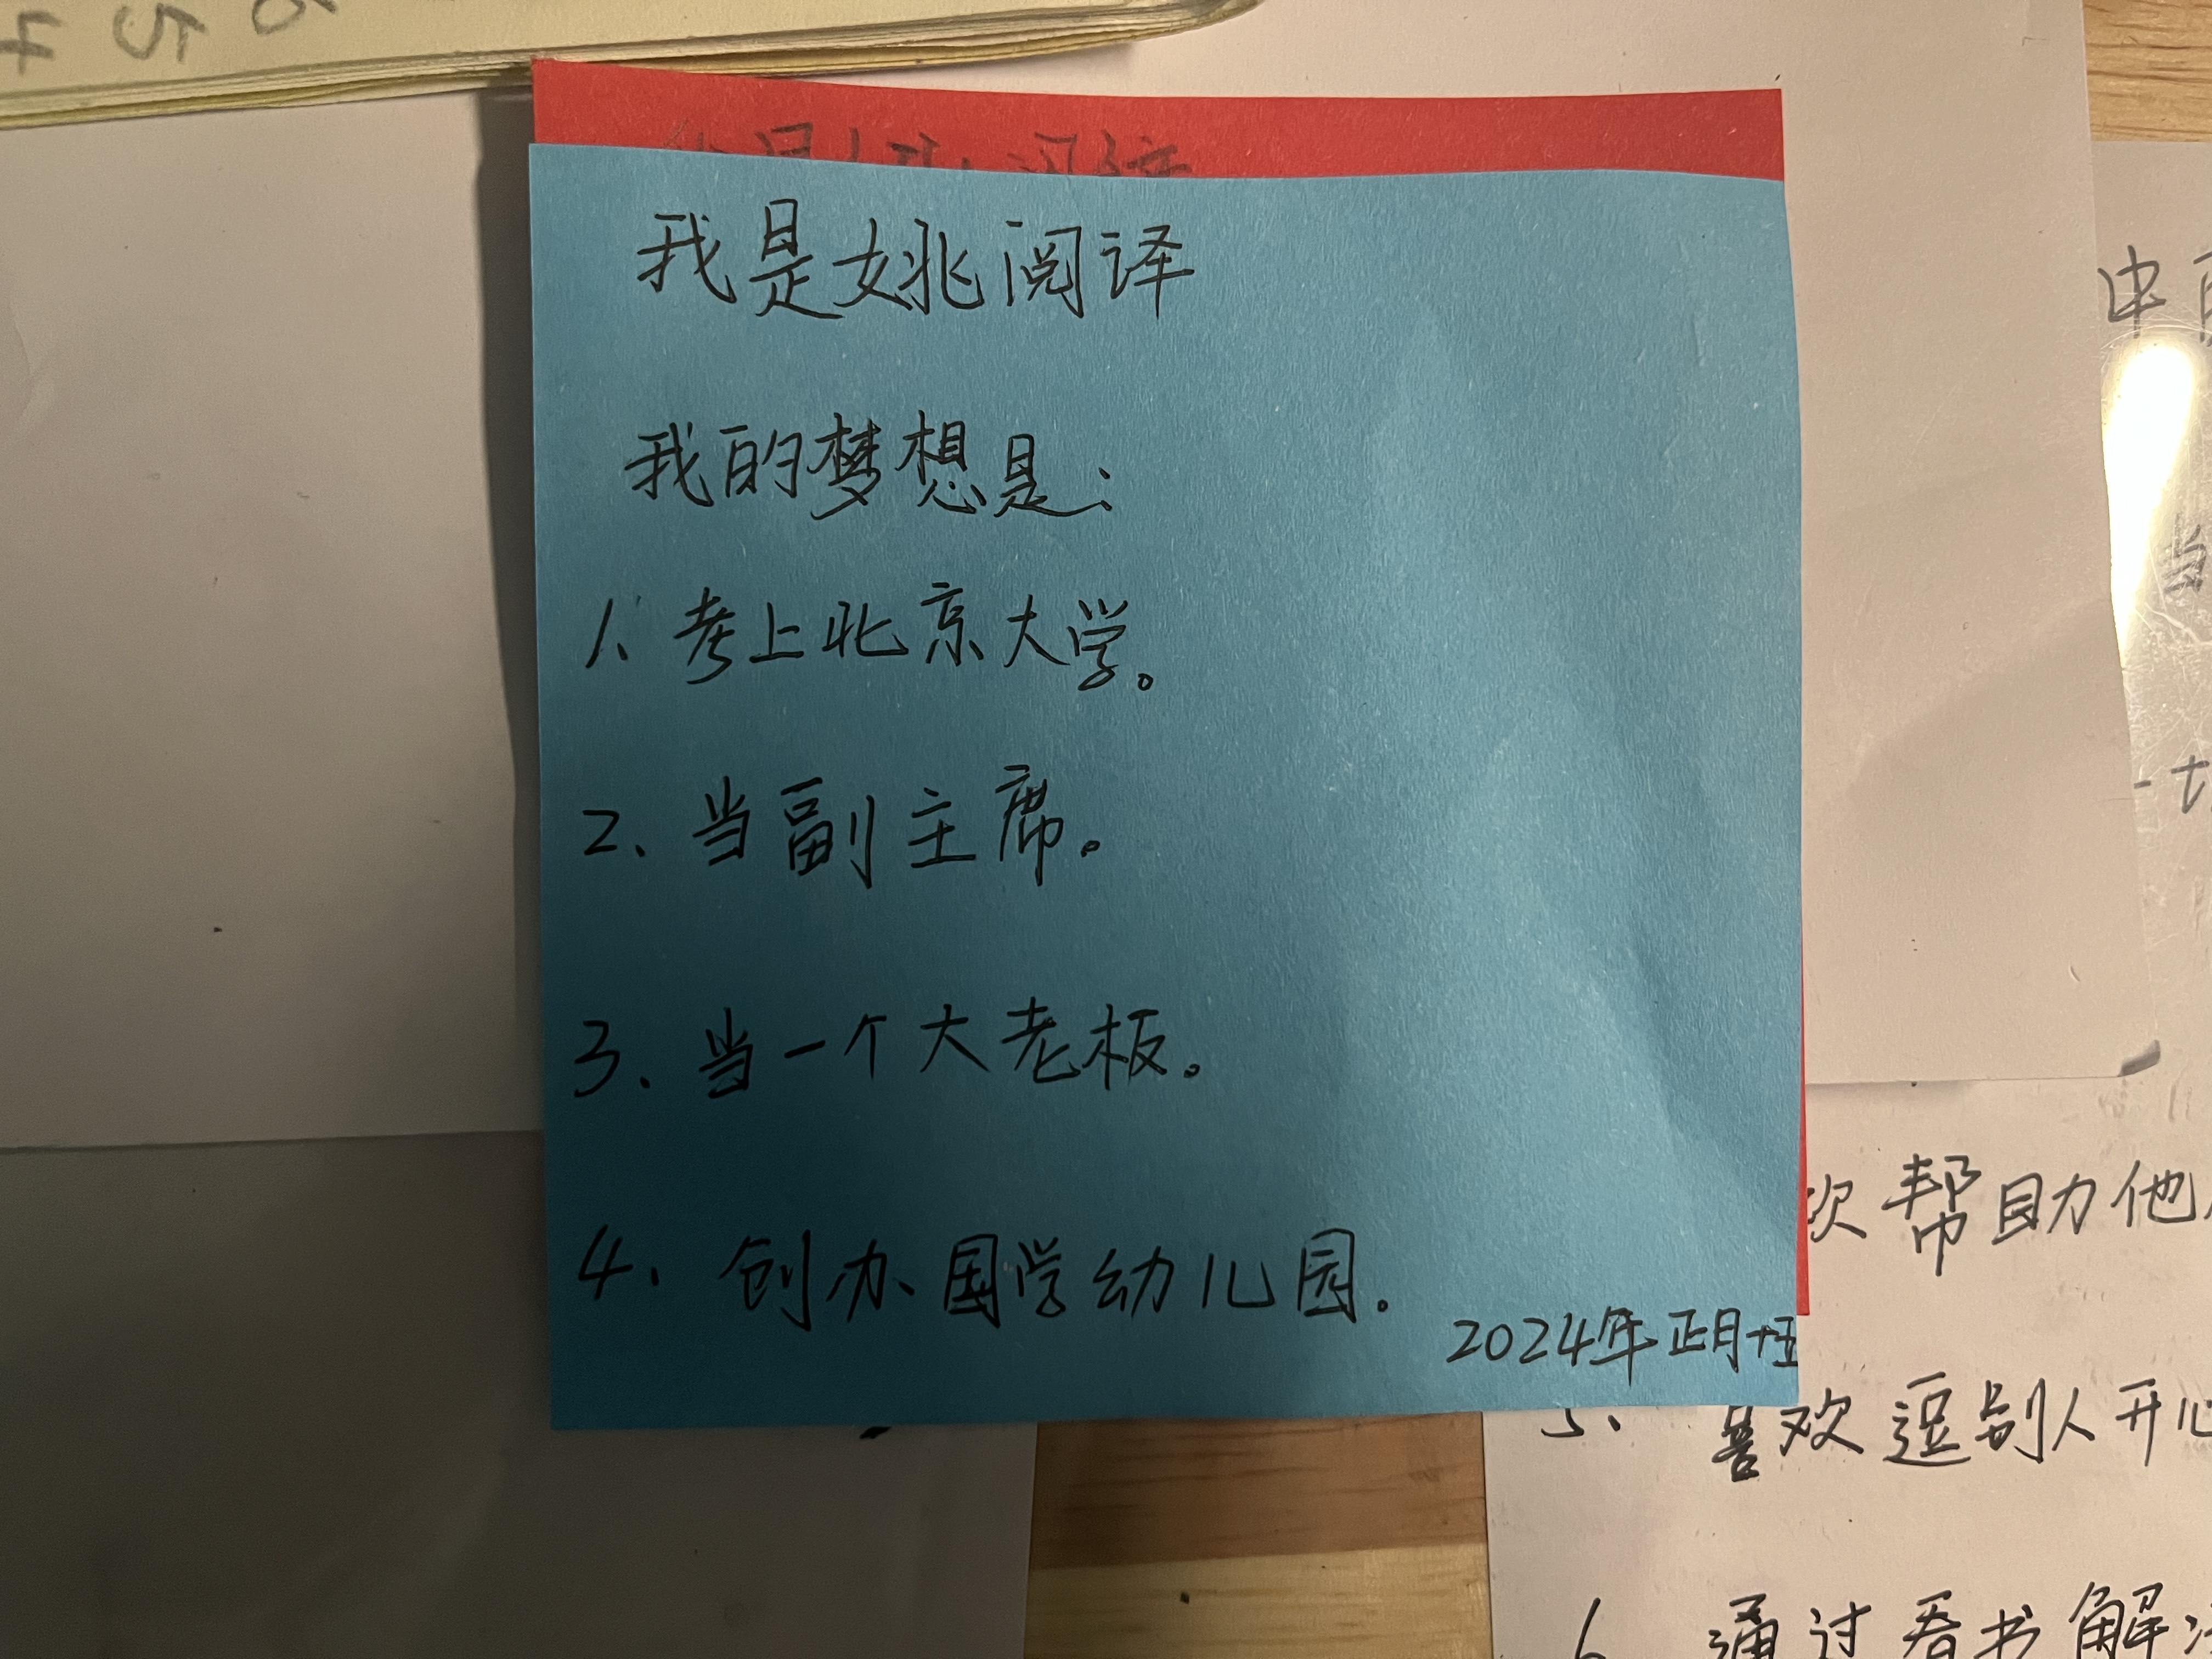 6
5
4
我是姚阅译
我的梦想是:
1、考上北京大学。
2、当副主席。
3、当一个大老板。
4、创办国学幼儿园。
2024年正月十五
中
当
一切
欢帮助他
5、喜欢逗别人开心
6 通过看书解决